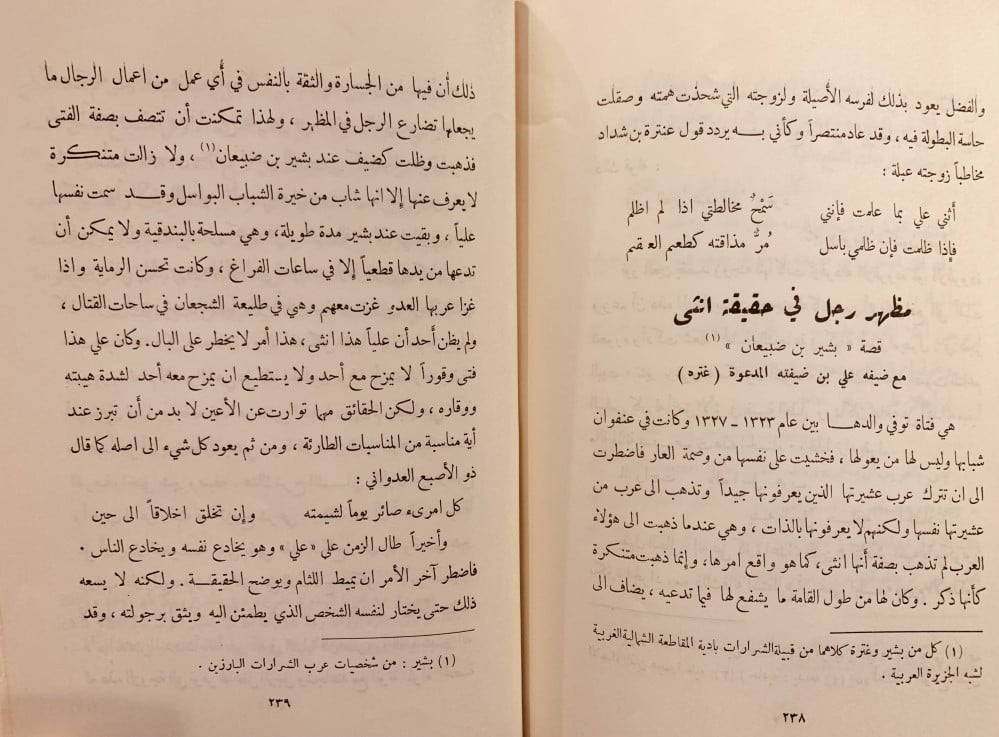 والفضل يعود بذلك لفرسه الأصيلة ولزوجته التي شحذت همته وصقلت
حاسة البطولة فيه ، وقد عاد منتصراً وكأني بـه يردد قول عنترة بن شداد
مخاطباً زوجته عبلة :
أثني علي بما علمت فإنني سَمْحٌ مخالطتي اذا لم اظلم
فإذا ظلمت فإن ظلمي باسل مُرٌّ مذاقته كطعم العلقم
مظهر رجل في حقيقة انثى
قصة « بشير بن ضبيعان » (١)
مع ضيفه علي بن ضيفته المدعوة ( غتره )
هي فتاة توفي والدهـا بين عام ١٣٢٣ ــ ١٣٢٧ وكانت في عنفوان
شبابها وليس لها من يعولها ، فخشيت على نفسها من وصمة العار فاضطرت
الى ان تترك عرب عشيرتها الذين يعرفونها جيداً وتذهب الى عرب من
عشيرتها نفسها ولكنهم لا يعرفونها بالذات ، وهي عندما ذهبت الى هؤلاء
العرب لم تذهب بصفة أنها انثى، كما هو واقع امرها، وإنما ذهبت متنكرة
كأنها ذكر . وكان لها من طول القامة ما يشفع لها فيما تدعيه ، يضاف الى
(١) كل من بشير وغترة كلاهما من قبيلة الشرارات بادية المقاطعة الشمالية الغربية
لشبه الجزيرة العربية .
٢٣٨
ذلك أن فيها من الجسارة والثقة بالنفس في أي عمل من اعمال الرجال ما
يجعلها تضارع الرجل في المظهر ، ولهذا تمكنت أن تتصف بصفة الفتى
فذهبت وظلت كضيف عند بشير بن ضبيعان(١) ، ولا زالت متنكرة
لا يعرف عنها إلا انها شاب من خيرة الشباب البواسل وقـد سمت نفسها
علياً ، وبقيت عند بشير مدة طويلة، وهي مسلحة بالبندقية ولا يمكن أن
تدعها من يدها قطعياً إلا في ساعات الفراغ ، وكانت تحسن الرماية واذا
غزا عربها العدو غزت معهم وهي في طليعة الشجعان في ساحات القتال ،
ولم يظن أحد أن علياً هذا انثى، هذا أمر لا يخطر على البال. وكان علي هذا
فتى وقوراً لا يمزح مع أحد ولا يستطيع ان يمزح معه أحد لشدة هيبته
ووقاره ، ولكن الحقائق مهما توارت عن الأعين لا بد من أن تبرز عند
أية مناسبة من المناسبات الطارئة ، ومن ثم يعود كل شيء الى اصله كما قال
ذو الأصبع العدواني :
كل امرىء صائر يوماً لشيمته وإن تخلق اخلاقاً الى حين
وأخيراً طال الزمن على «علي » وهو يخادع نفسه ويخادع الناس .
فاضطر آخر الأمر ان يميط اللثام ويوضح الحقيقـة . ولكنه لا يسعه
ذلك حتى يختار لنفسه الشخص الذي يطمئن اليه ويثق برجولته ، وقد
(١) بشير : من شخصيات عرب الشرارات البارزين .
٢٣٩